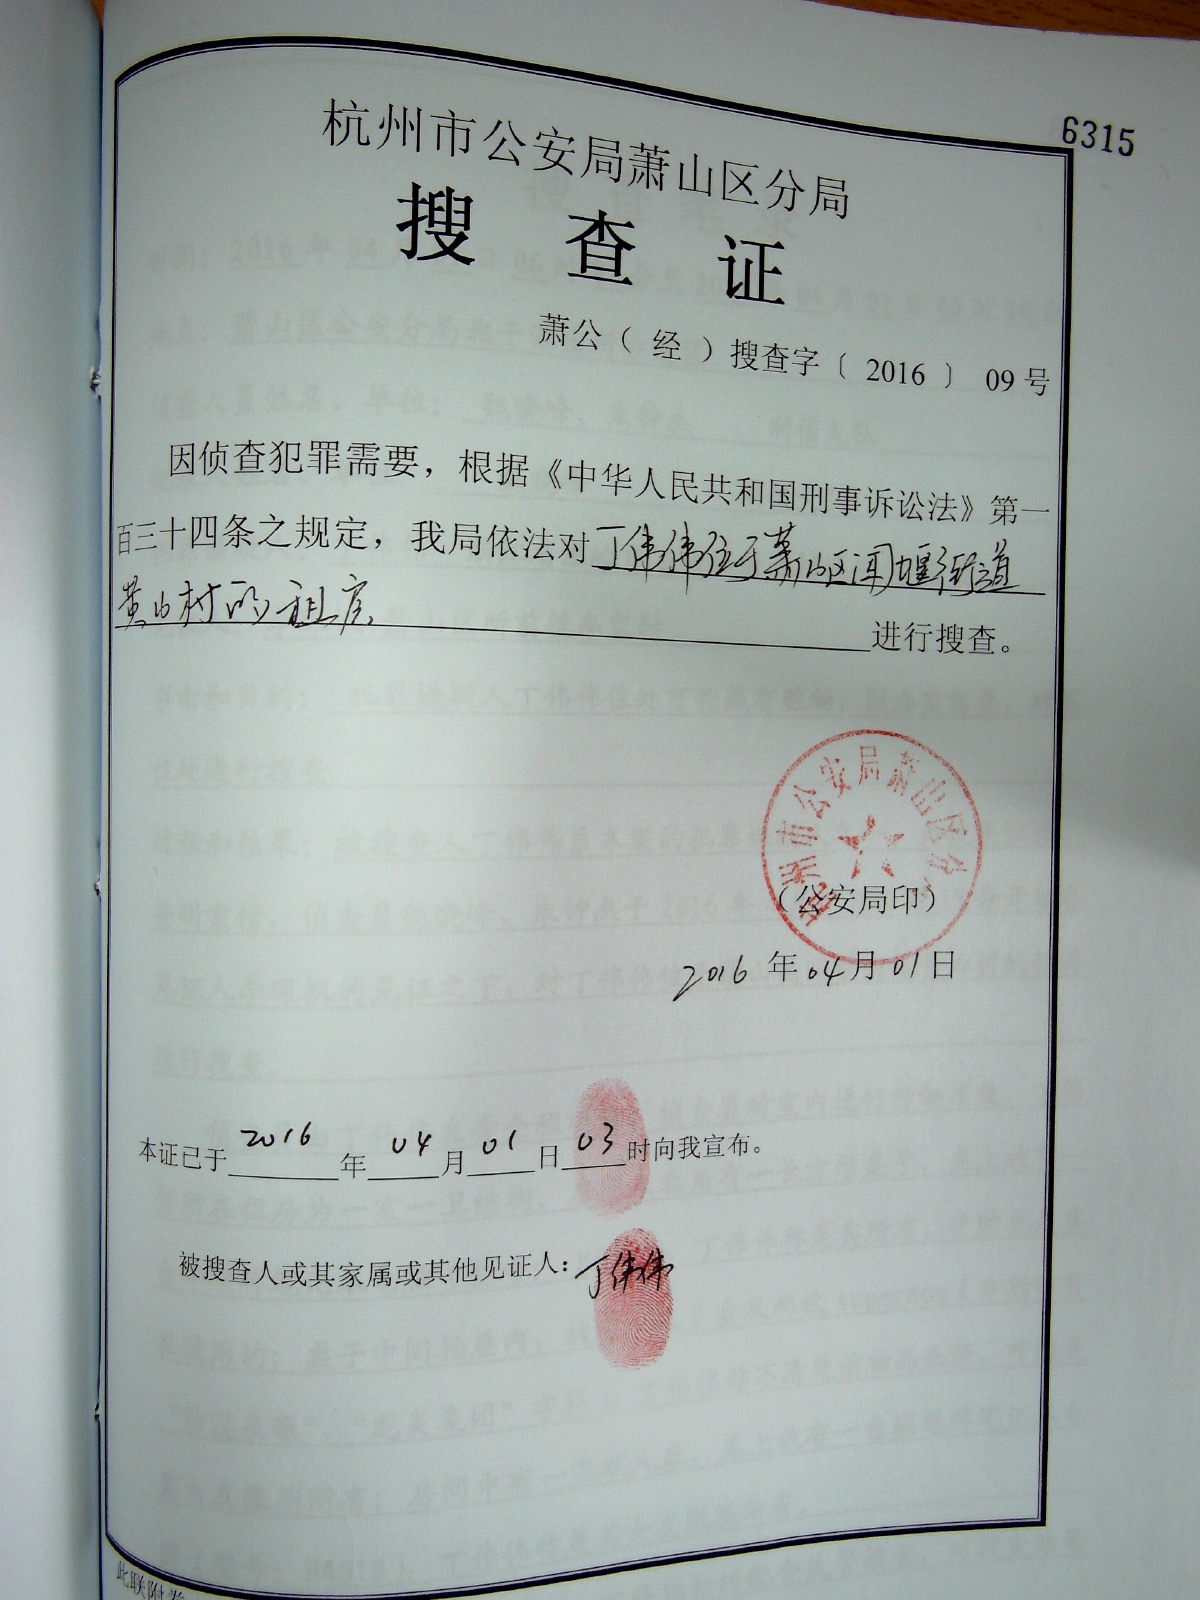 6315
杭州市公安局萧山区分局
搜查证
萧公（经）搜查字〔2016〕09号
因侦查犯罪需要，根据《中华人民共和国刑事诉讼法》第一
百三十四条之规定，我局依法对丁伟伟位于萧山区闻堰街道
黄山村的租房 进行搜查。
杭州市公安局萧山区分局
（公安局印）
2016年04月01日
本证已于2016年04月01日03时向我宣布。
被搜查人或其家属或其他见证人：丁伟伟
此联附卷